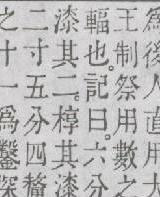 爲後人直用大
王制祭用數之
輻也記曰六分
漆其二椁其漆
二寸五分四釐
之十一爲鑿深